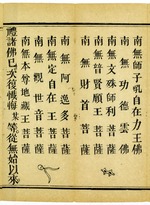 南無師子孔自在力王佛
南無功德雲佛
南無文殊師利菩薩
南無普賢願王菩薩
南無財首菩薩
南無阿逸多菩薩
南無定自在王菩薩
南無觀世音菩薩
南無本尊地藏王菩薩
禮諸佛已次復懺悔某等從無始以來